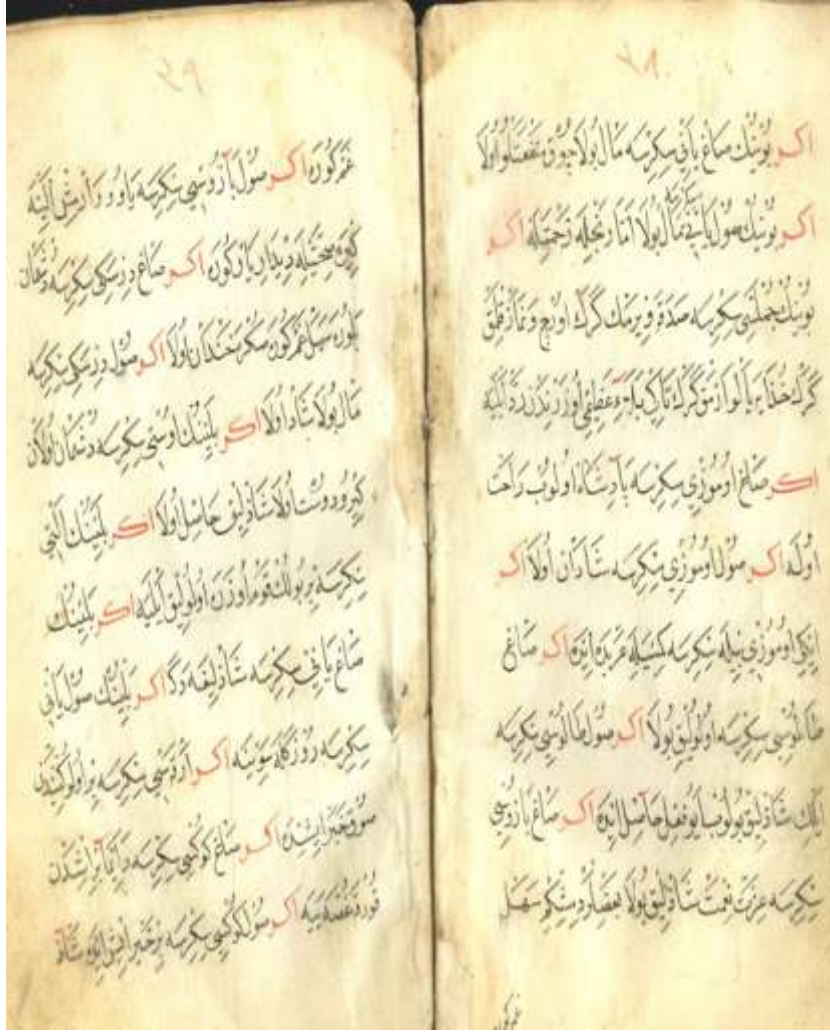 اكر بوينك صاغ ياني سكرسه مال بولا چوق منفعتلو اولا
اكر بوينك صول ياني سكرسه مال بولا اما رنجله زحمتله اكر
بوينك جملسى سكرسه صدقه ويرمك كرك اوروج و نماز قلمق
كرك
اكر صاغ اوموزى سكرسه پادشاه اولوب راحت
اوله اكر صول اوموزى سكرسه شادان اولا اكر
ايكى اوموزى بيله سكرسه كمسيله عربده ايده اكر صاغ
طالوسى سكرسه اولولق بولا اكر صول طالوسى سكرسه
شاذلق بولوب حاصل ايده اكر صاغ بازوسى
سكرسه عزت نعمت شاذلق بولا بعضلر ديمشلر سهل
غم كوره
غم كوره اكر صول بازوسى سكرسه ياوو وارمش الينه
كيره صحتيله ديدار يار كوره اكر صاغ درسكى سكرسه دشمان
غم كوره خندان اولا اكر صول درسكى سكرسه
مال بولا شاد اولا اكر بلينك اوستى سكرسه دشمان اولان
كيرو دوست اولا شاذلق حاصل اولا اكر بلينك التى
سكرسه بر بولك قوم اوزره اولولق ايليه اكر بلينك
صاغ ياني سكرسه شاذلغه دكر اكر بلينك صول ياني
سكرسه روزكله سوينه اكر ارقه سى سكرسه بر اولو كشيدن
خبر ايشيده اكر صاغ كوكسى سكرسه
غصه ييه اكر صول كوكسى سكرسه بر خبر ايشيده شاد